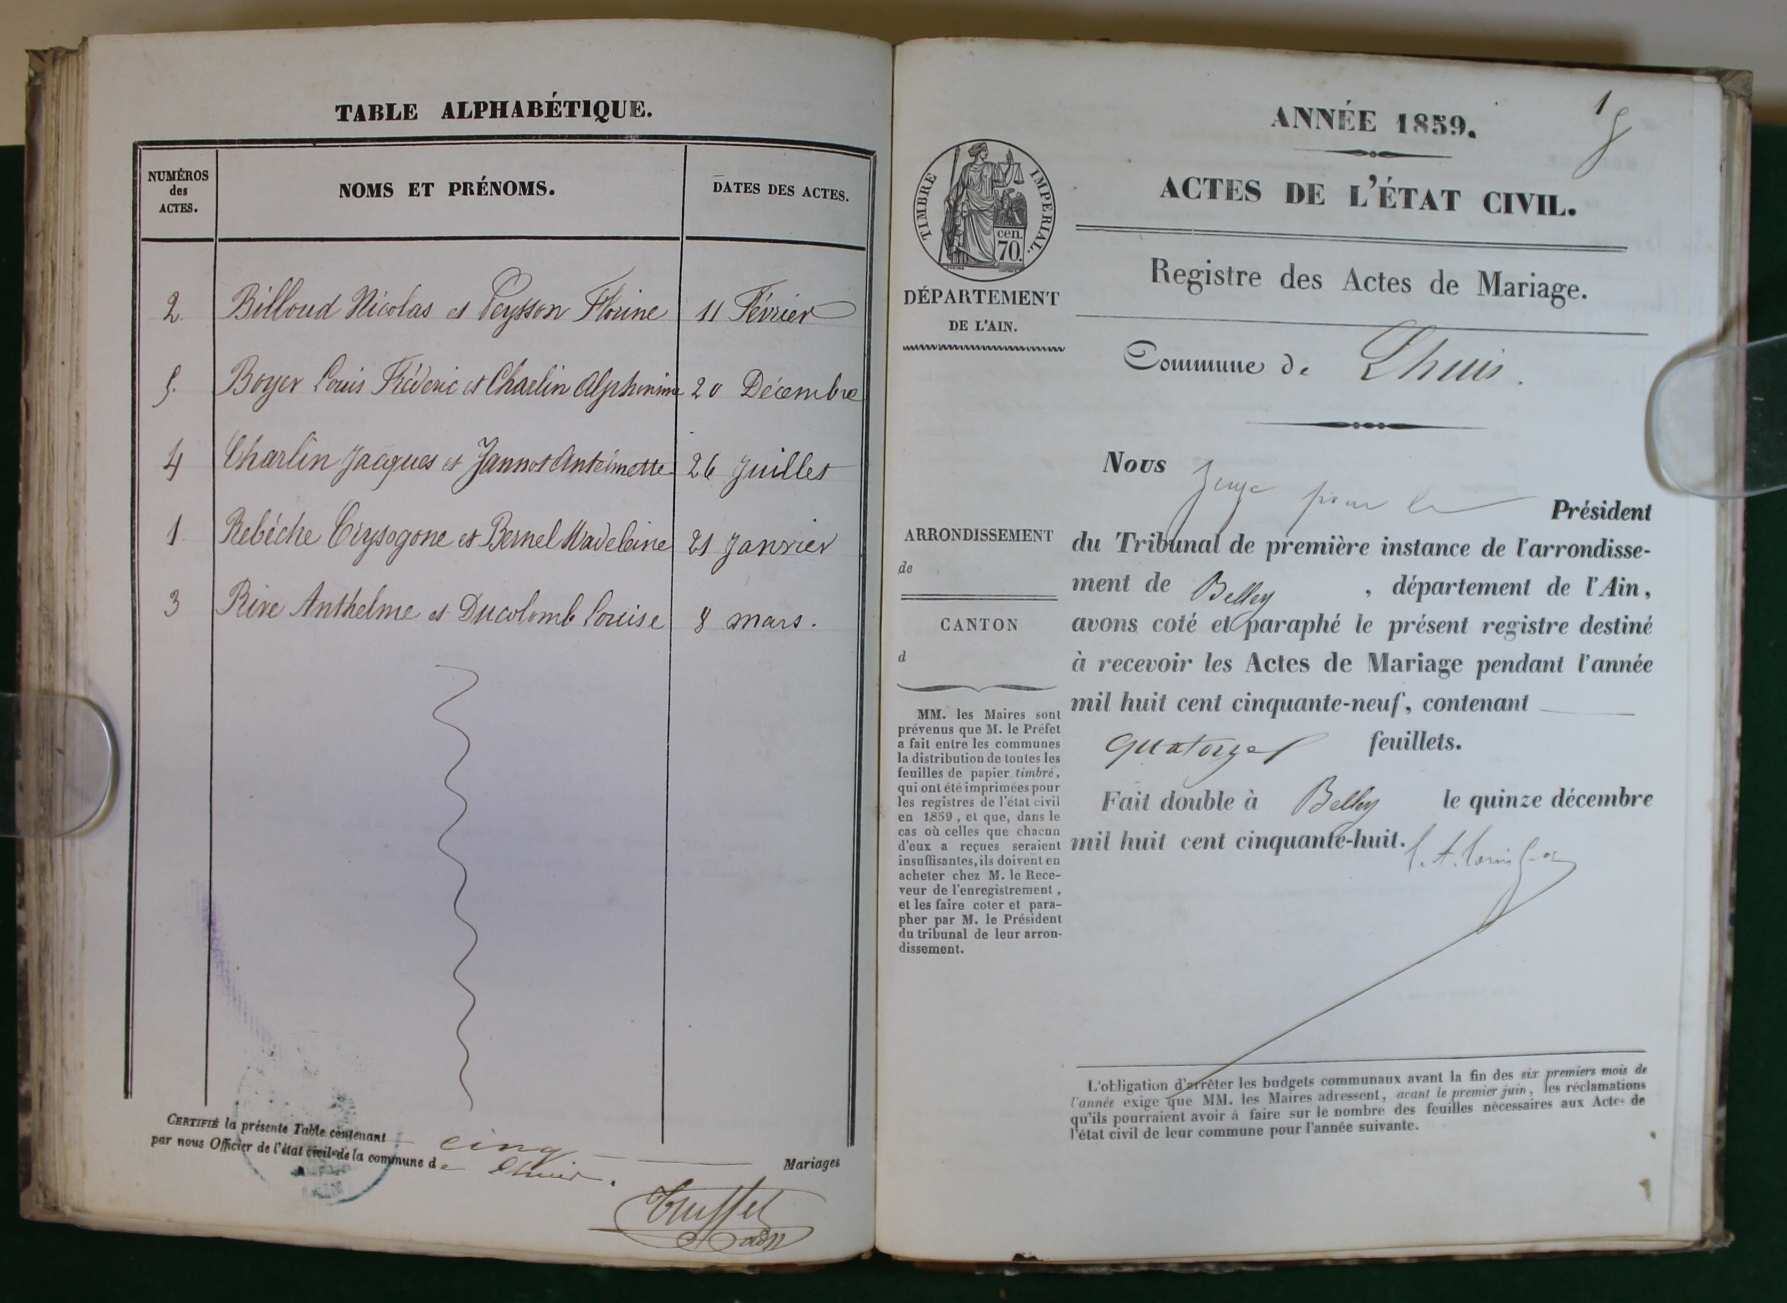 TABLE ALPHABÉTIQUE.
NUMÉROS des ACTES. NOMS ET PRÉNOMS. DATES DES ACTES.
2. Billoud Nicolas et Peysson Florine 11 Février
5. Boyer Louis Fréderic et Charlin Alphonsine 20 Décembre
4 Charlin Jacques et Jannot Antoinette 26 Juillet
1 Rebéche Crysogone et Bernel Madeleine 21 Janvier
3 Rive Anthelme et Ducolomb Louise 8 mars.
CERTIFIÉ la présente Table contenant cinq Mariages
par nous Officier de l'état civil de la commune de Lhuis.
Truffet
adj
1
ANNÉE 1859.
TIMBRE IMPÉRIAL.
cen.
70.
ACTES DE L'ÉTAT CIVIL.
Registre des Actes de Mariage.
DÉPARTEMENT
DE L'AIN.
Commune de Lhuis.
ARRONDISSEMENT
de
CANTON
d
MM. les Maires sont
prévenus que M. le Préfet
a fait entre les communes
la distribution de toutes les
feuilles de papier timbré,
qui ont été imprimées pour
les registres de l'état civil
en 1859, et que, dans le
cas où celles que chacun
d'eux a reçues seraient
insuffisantes, ils doivent en
acheter chez M. le Rece-
veur de l'enregistrement,
et les faire coter et para-
pher par M. le Président
du tribunal de leur arron-
dissement.
Nous Juge pour le Président
du Tribunal de première instance de l'arrondisse-
ment de Belley, département de l'Ain,
avons coté et paraphé le présent registre destiné
à recevoir les Actes de Mariage pendant l'année
mil huit cent cinquante-neuf, contenant
quatorze feuillets.
Fait double à Belley le quinze décembre
mil huit cent cinquante-huit.
L'obligation d'arrêter les budgets communaux avant la fin des six premiers mois de
l'année exige que MM. les Maires adressent, avant le premier juin, les réclamations
qu'ils pourraient avoir à faire sur le nombre des feuilles nécessaires aux Actes de
l'état civil de leur commune pour l'année suivante.